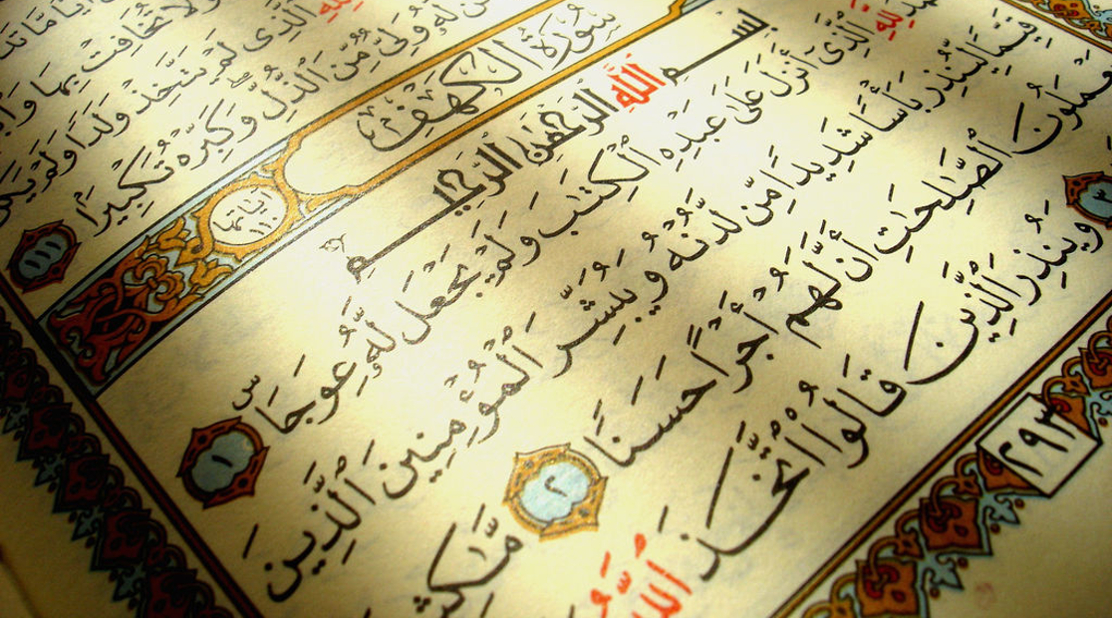 وَلَا تُخَافِتْ بِهَا
ٱلَّذِى لَمْ يَتَّخِذْ وَلَدًا وَلَمْ
لَّهُۥ وَلِىٌّ مِّنَ ٱلذُّلِّ وَكَبِّرْهُ تَكْبِيرًا ١١١
سُورَةُ الكَهْفِ
آيَاتُهَا ١١٠
بِسْمِ ٱللَّهِ ٱلرَّحْمَٰنِ ٱلرَّحِيمِ
لِلَّهِ ٱلَّذِىٓ أَنزَلَ عَلَىٰ عَبْدِهِ ٱلْكِتَٰبَ وَلَمْ يَجْعَل لَّهُۥ عِوَجَا س ١
قَيِّمًا لِّيُنذِرَ بَأْسًا شَدِيدًا مِّن لَّدُنْهُ وَيُبَشِّرَ ٱلْمُؤْمِنِينَ ٱلَّذِينَ
يَعْمَلُونَ ٱلصَّٰلِحَٰتِ أَنَّ لَهُمْ أَجْرًا حَسَنًا ٢
٣ وَيُنذِرَ ٱلَّذِينَ قَالُوا۟ ٱتَّخَذَ ٱللَّهُ
٢٩٣